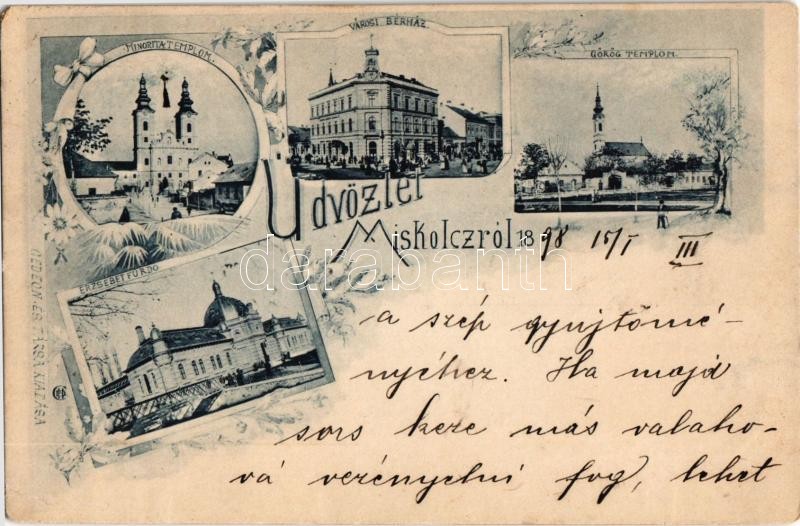 MINORITA TEMPLOM.
VÁROSI BÉRHÁZ.
GÖRÖG TEMPLOM.
Üdvözlet
Miskolczról 1898 15/I III
ERZSÉBET FÜRDŐ
GEDEON ÉS TÁRSA KIADÁSA
darabanth
a szép gyujtömé-
nyéhez. Ha majd
sors keze más valaho-
vá verényelni fog, lehet